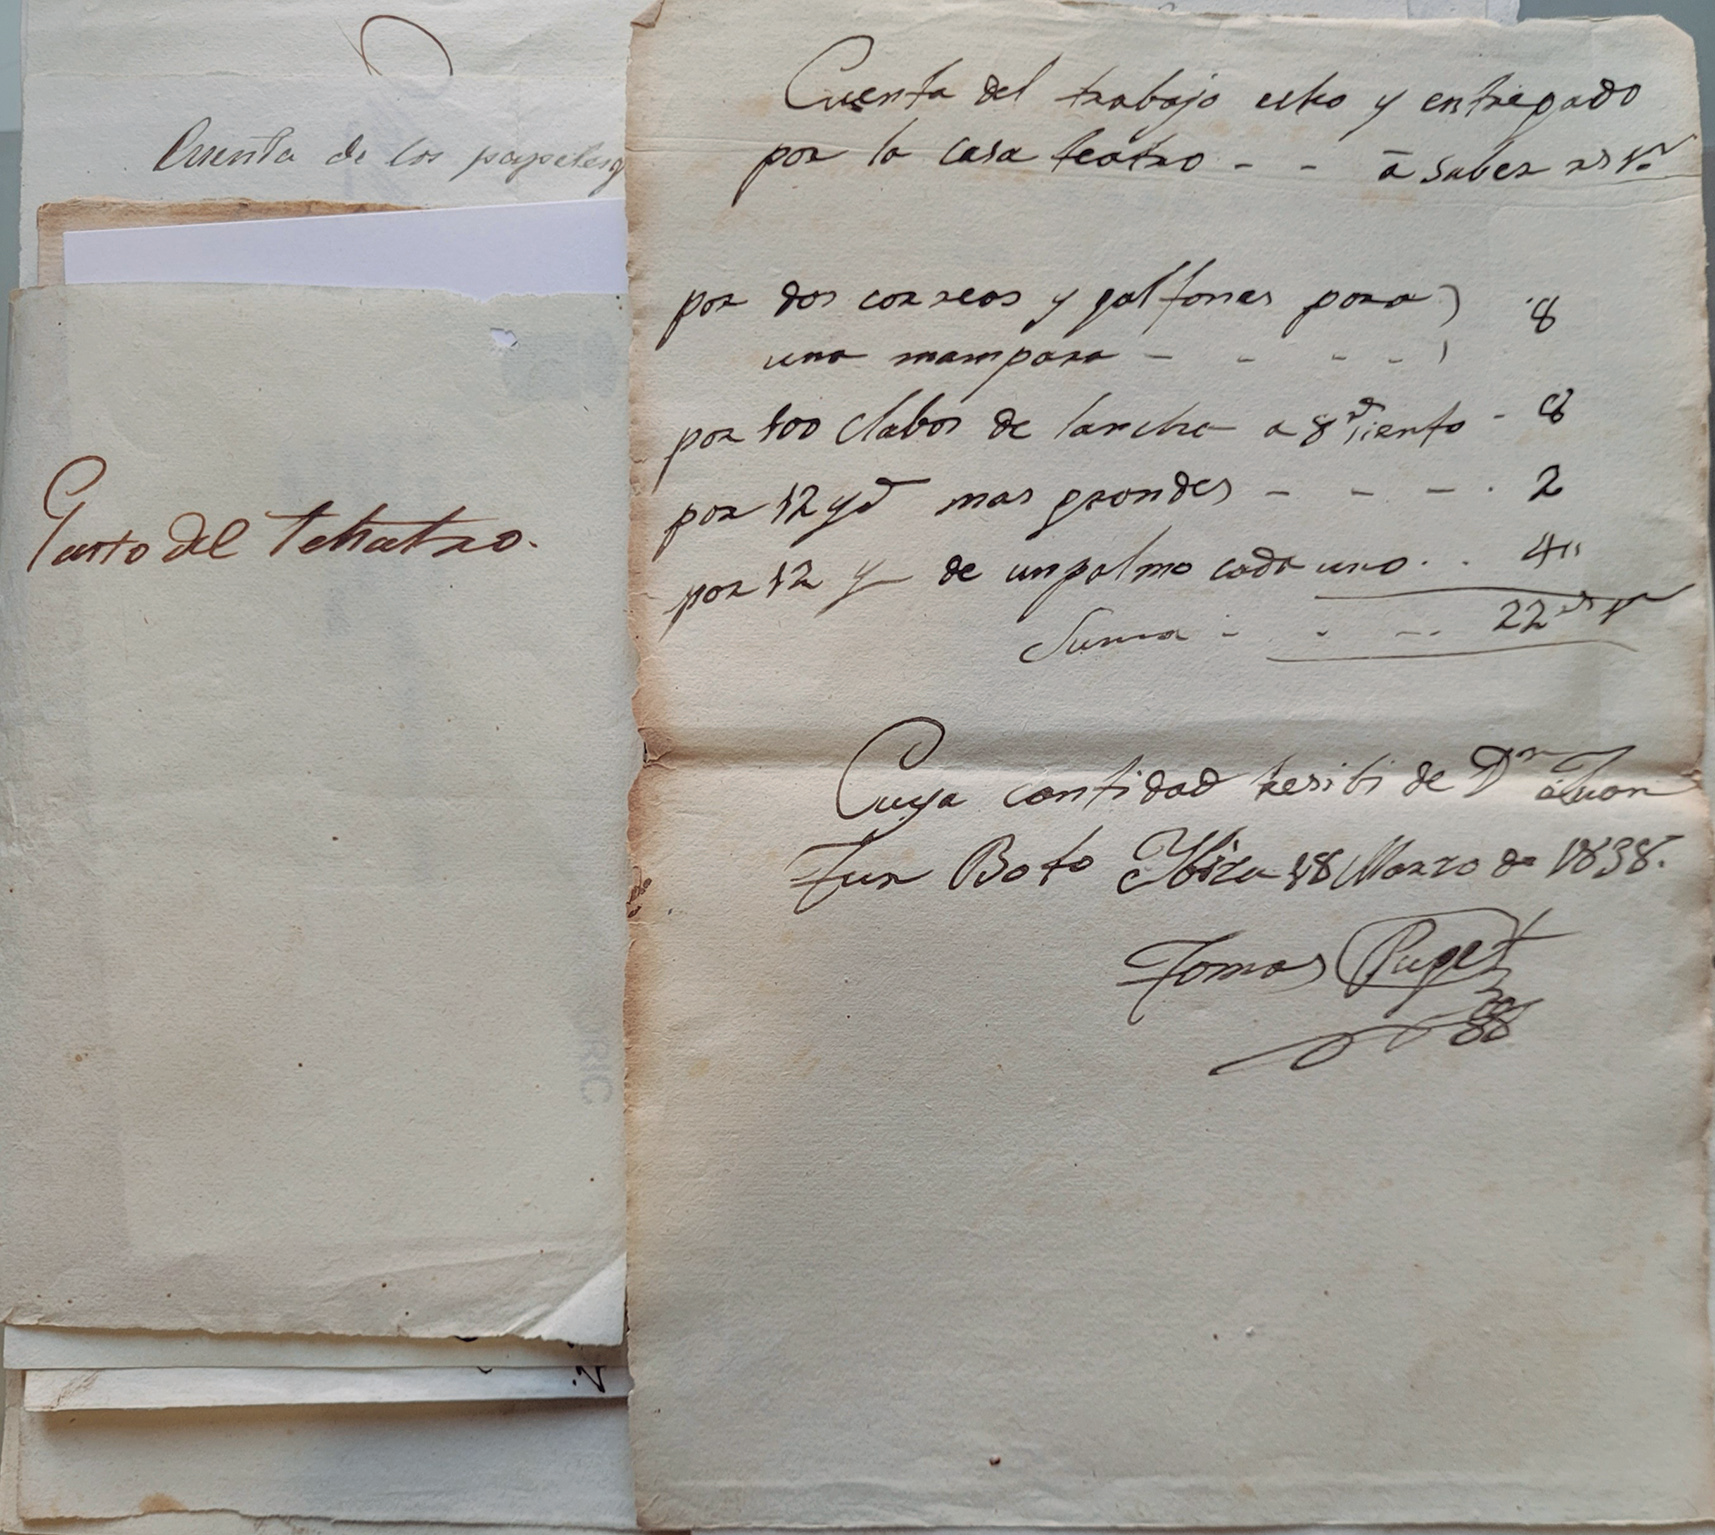 Cuenta de los papeles
Gasto del tehatro.
Cuenta del trabajo esho y entregado
por la casa teatro - - á saber rs vn
por dos correos y galfones para 8
una mampara - - - -
por 100 clabos de lancha a 8 rs siento - 8
por 12 yd mas grandes - - - . 2
por 12 y de un palmo cada uno . . 4"
Suma - . -- 22 rs vn
Cuya cantidad resibi de Dn Juan
Tur Boto Ibiza 18 Marzo de 1838.
Tomas Puget